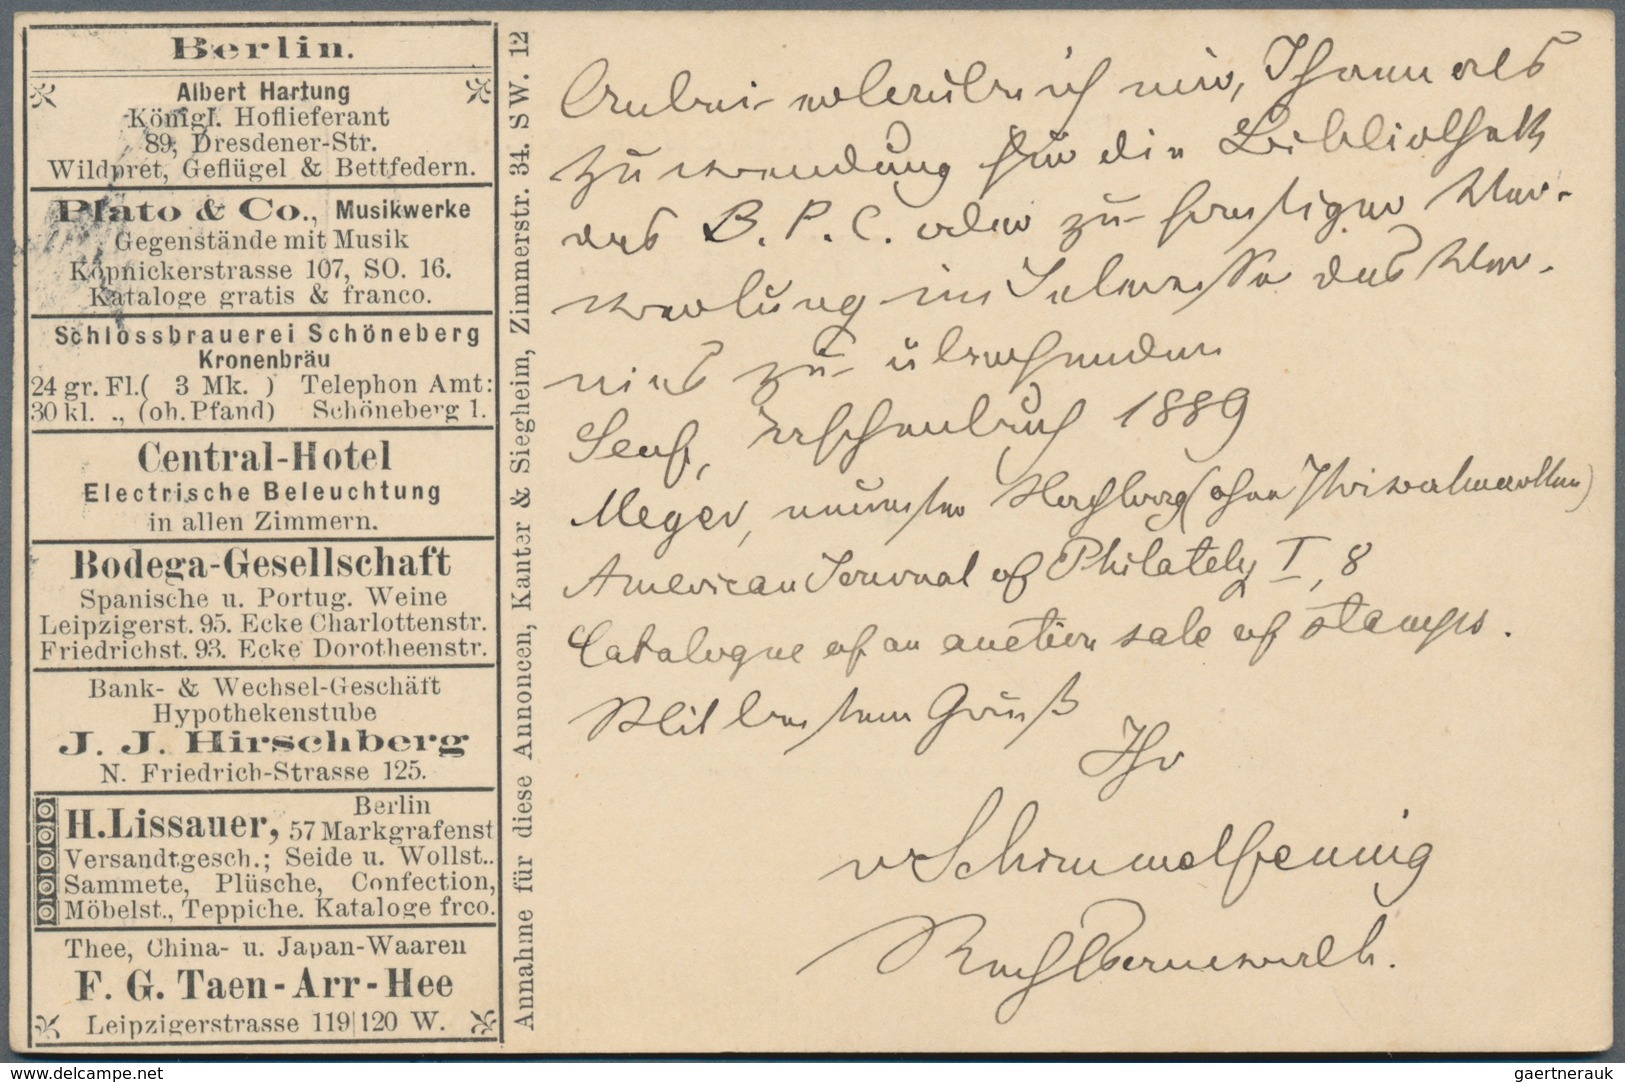 Berlin.
Albert Hartung
Königl. Hoflieferant
89, Dresdener-Str.
Wildpret, Geflügel & Bettfedern.
Plato & Co., Musikwerke
Gegenstände mit Musik
Köpnickerstrasse 107, SO. 16.
Kataloge gratis & franco.
Schlossbrauerei Schöneberg
Kronenbräu
24 gr. Fl.( 3 Mk. ) Telephon Amt:
30 kl. „ (oh. Pfand) Schöneberg 1.
Central-Hotel
Electrische Beleuchtung
in allen Zimmern.
Bodega-Gesellschaft
Spanische u. Portug. Weine
Leipzigerst. 95. Ecke Charlottenstr.
Friedrichst. 93. Ecke Dorotheenstr.
Bank- & Wechsel-Geschäft
Hypothekenstube
J. J. Hirschberg
N. Friedrich-Strasse 125.
H. Lissauer, Berlin
57 Markgrafenst
Versandtgesch.; Seide u. Wollst..
Sammete, Plüsche, Confection,
Möbelst., Teppiche. Kataloge frco.
Thee, China- u. Japan-Waaren
F. G. Taen-Arr-Hee
Leipzigerstrasse 119|120 W.
Annahme für diese Annoncen, Kanter & Siegheim, Zimmerstr. 34. SW. 12
Anbei erlaube ich mir, Ihnen als
Zuwendung für die Bibliothek
des B. P. C. oder zu sonstiger Ver-
wertung im Interesse des Ver-
eins zu übersenden
Senf, 1889
Meyer, (ohne Privatmarken)
American Journal of Philately I, 8
Catalogue of an auction sale of stamps.
Mit bestem Gruß
Ihr
v Schimmelpfennig